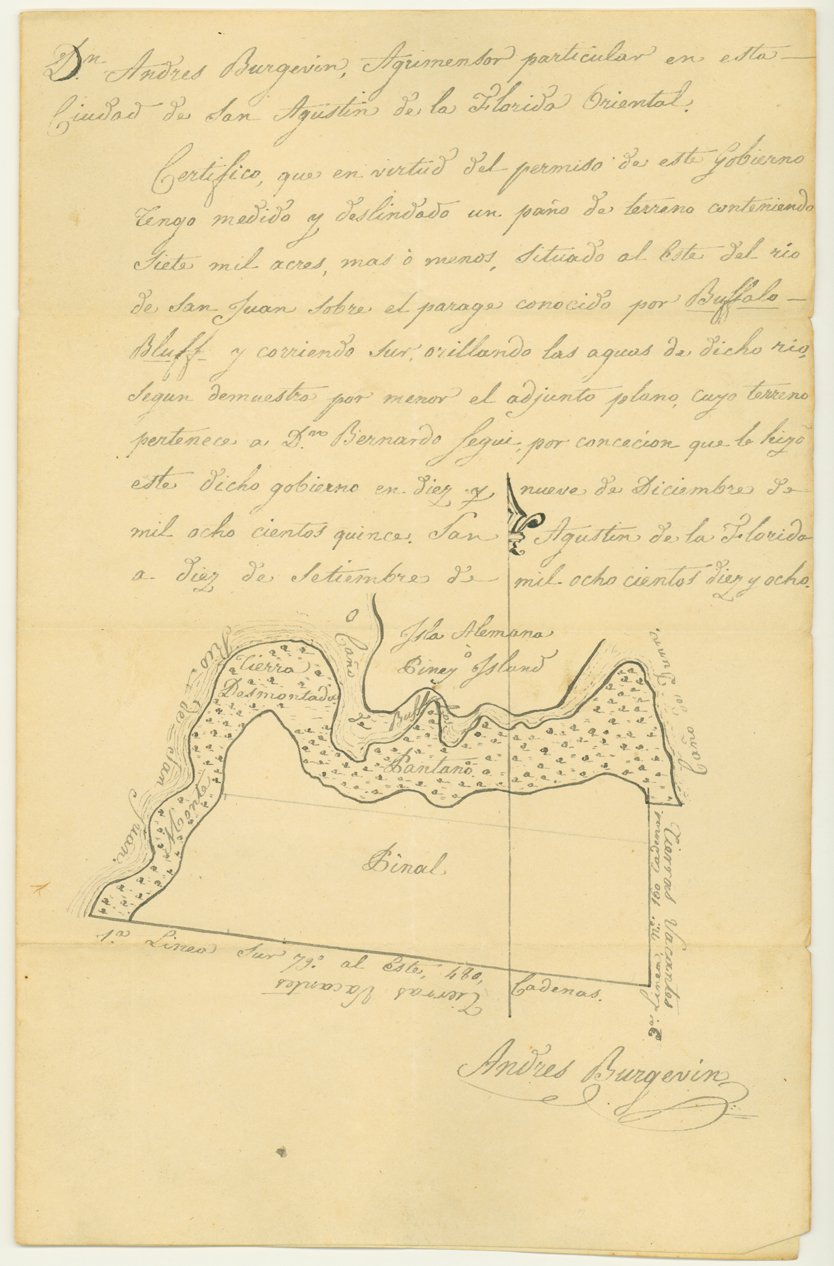 Dn. Andres Burgevin, Agrimensor particular en esta
Ciudad de San Agustin de la Florida Oriental.
Certifico, que en virtud del permiso de este Gobierno
tengo medido y deslindado un paño de terreno conteniendo
siete mil acres, mas ò menos, situado al Este del rio
de San Juan sobre el parage conocido por Buffalo
Bluff y corriendo sur, orillando las aguas de dicho rio,
segun demuestra por menor el adjunto plano, cuyo terreno
pertenece a Dn. Bernardo Segui, por concecion que le hizo
este dicho gobierno en diez y nueve de Diciembre de
mil ocho cientos quince. San Agustin de la Florida
a diez de Setiembre de mil ocho cientos diez y ocho.
Isla Alemana
ò
Piney Island
Caño de Buffalos
Tierra
Desmontada
Rio de San Juan.
Monte
Pantano
Pinal
Caño del
Tierras Vacantes
2a. Linea, N. 160 Cadenas
1a. Linea Sur 79° al Este, 480, Cadenas.
Tierras Vacantes
Andres Burgevin